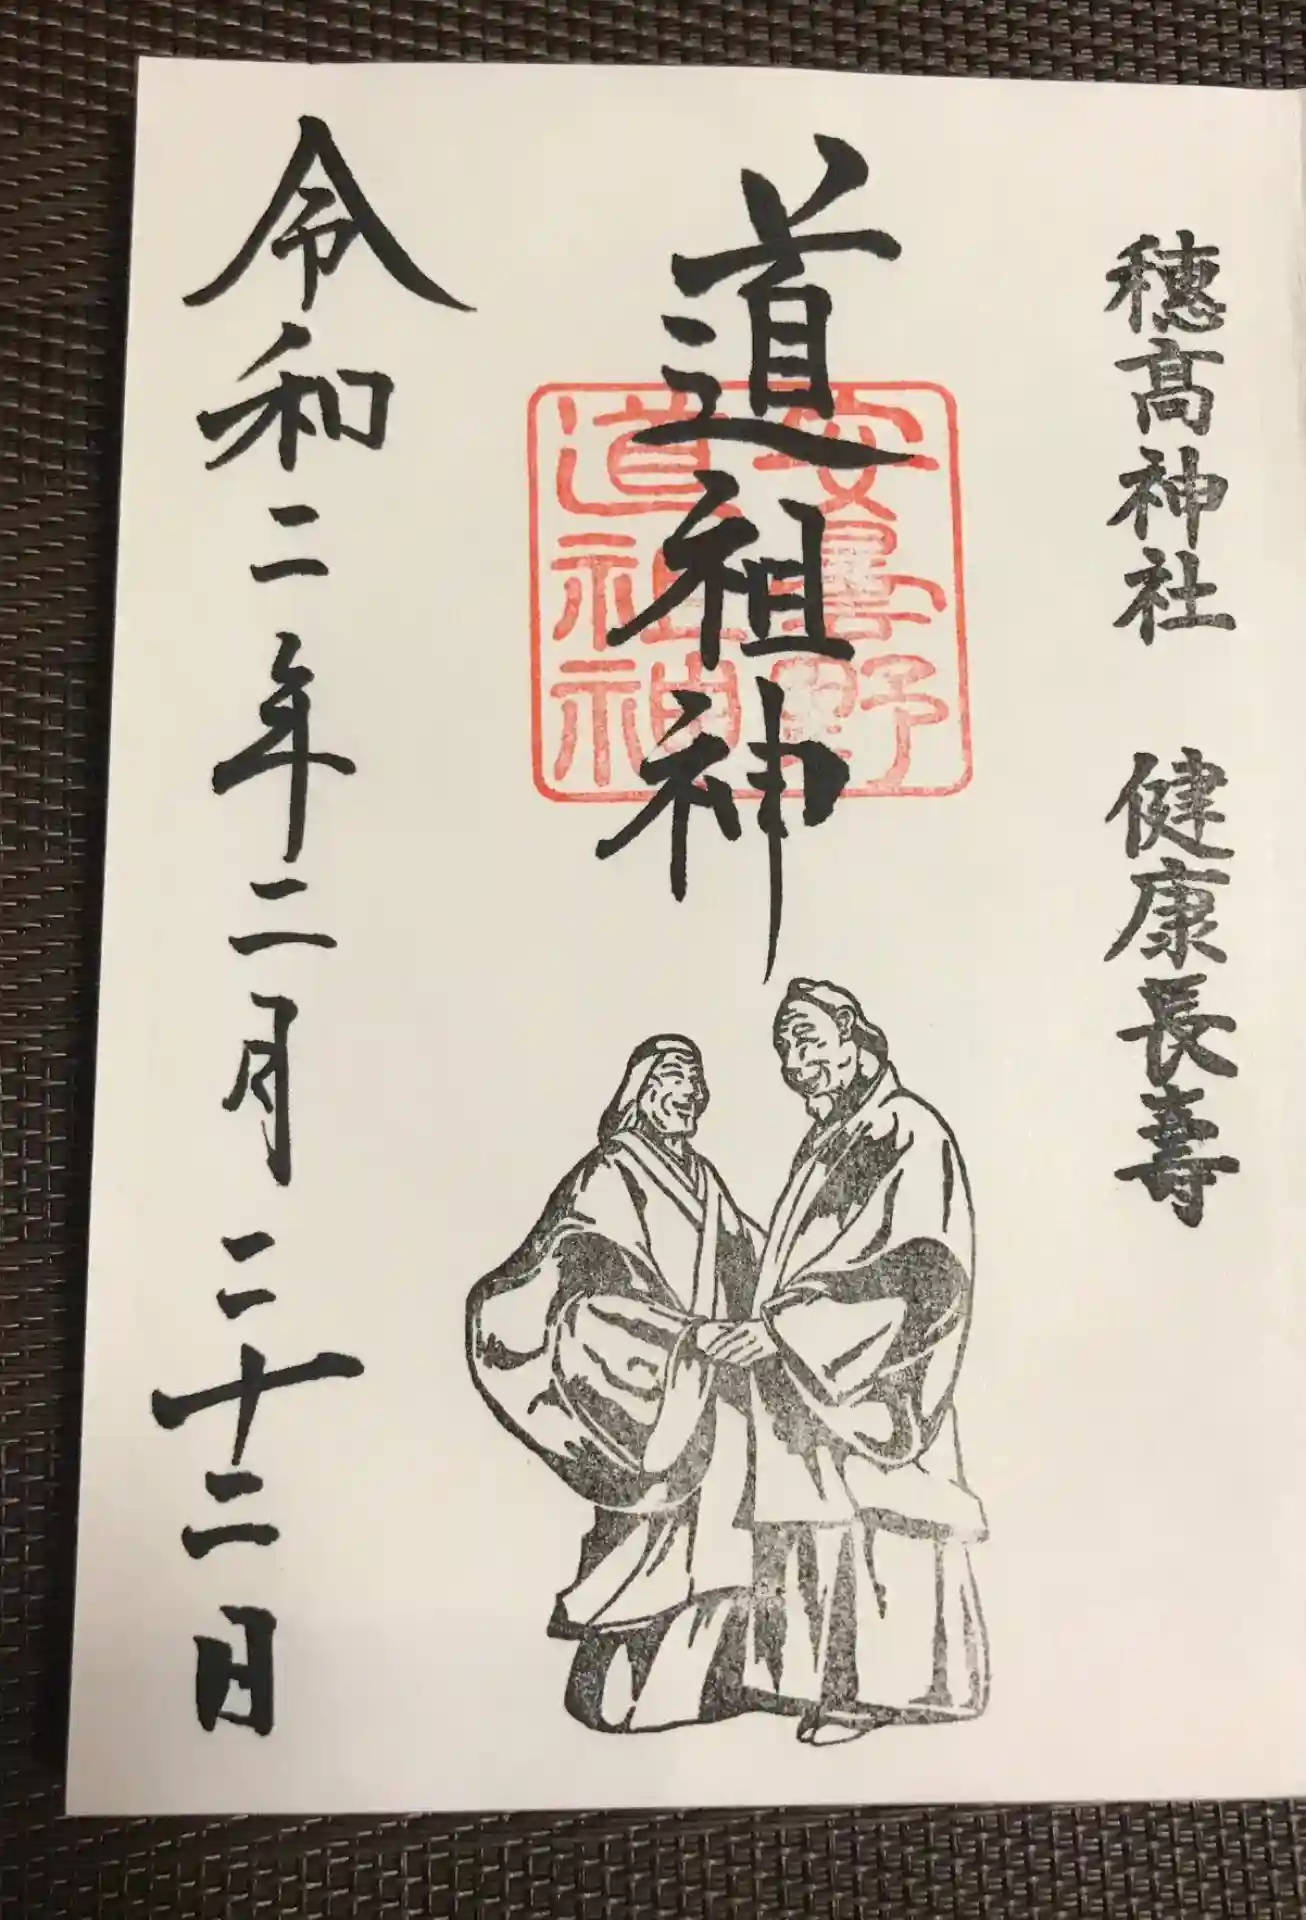 穂髙神社 健康長壽
道祖神
安曇野
道祖神
令和二年二月二十二日